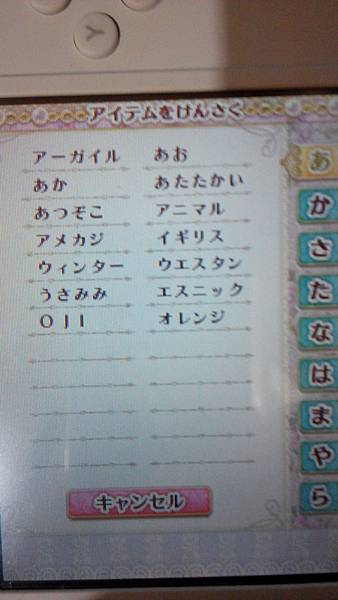 Y
アイテムをけんさく
アーガイル あお
あか あたたかい
あつぞこ アニマル
アメカジ イギリス
ウィンター ウエスタン
うさみみ エスニック
OJI オレンジ
キャンセル
あ
か
さ
た
な
は
ま
や
ら